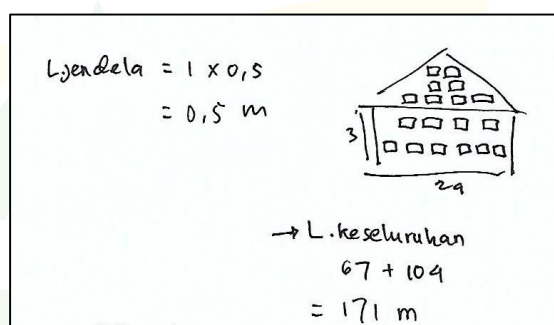 L.jendela = 1 x 0,5
= 0,5 m
3
29
→ L.keseluruhan
67 + 104
= 171 m